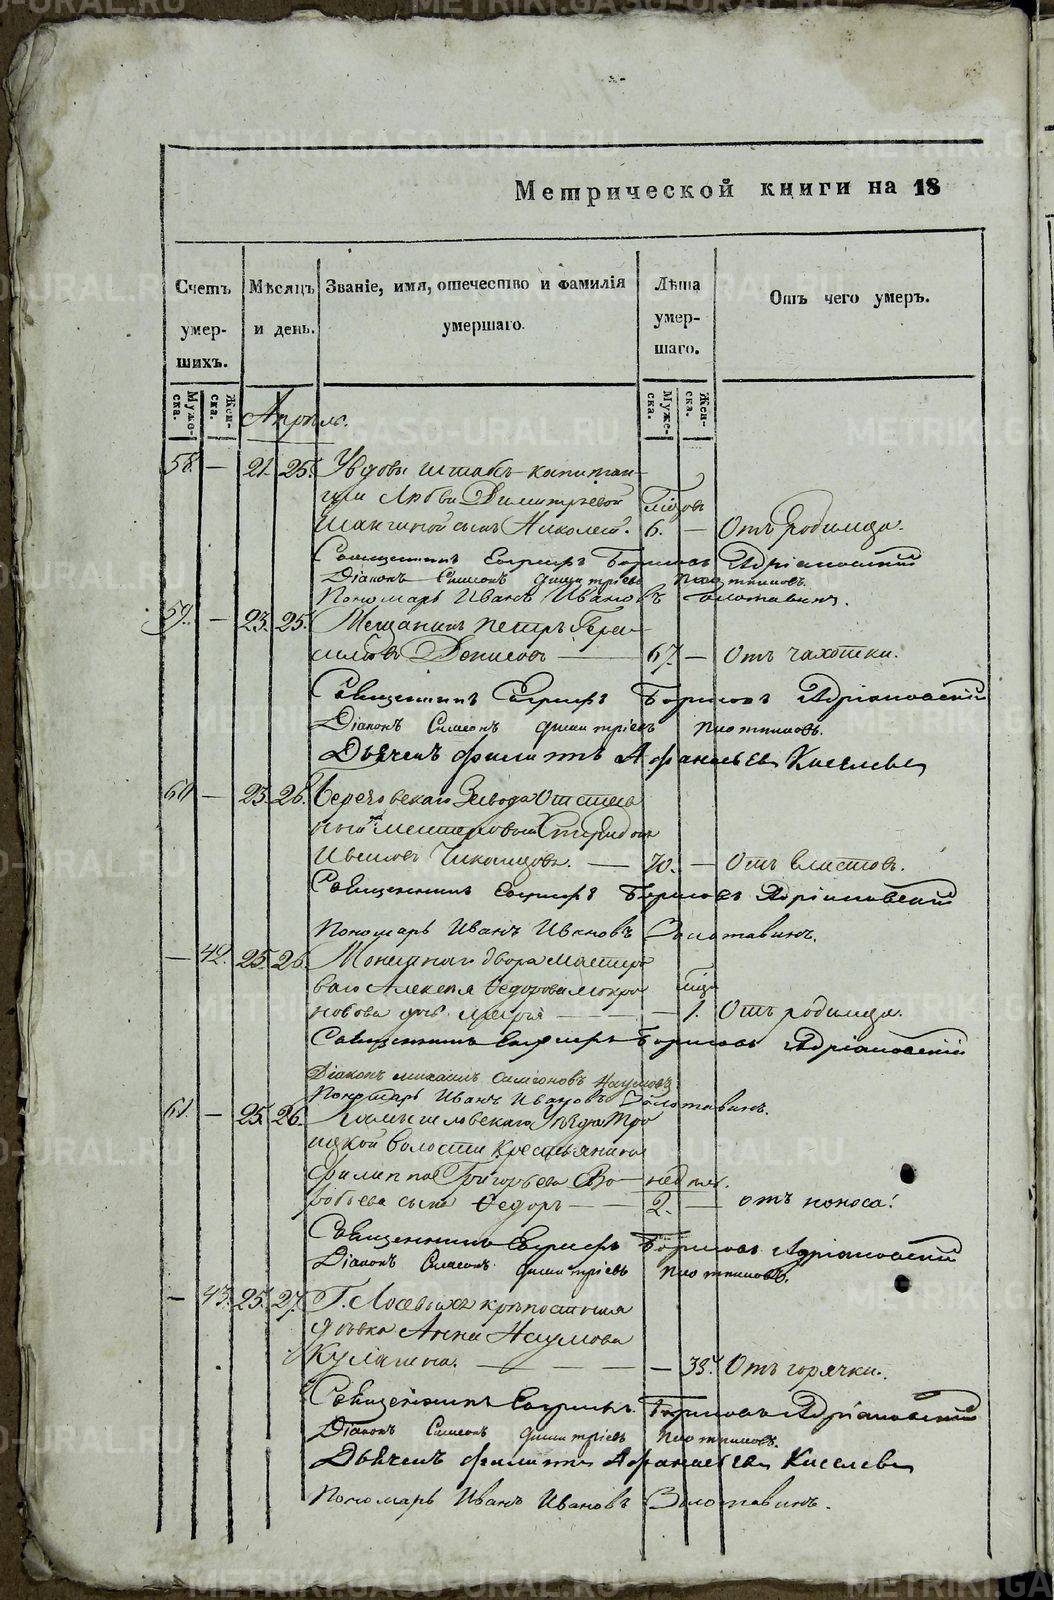 METRIKI.GASO-URAL.RU
Метрической книги на 18
Счетъ умер-шихъ.
Мѣсяцъ и день.
Званіе, имя, отечество и фамилія умершаго.
Лѣта умер-шаго.
Отъ чего умеръ.
Мужс-ска.
Жен-ска.
Муже-ска.
Жен-ска.
Апрѣль.
58. — 21. 25. Удовы штабъ-капитан-
ши Любви Димитріевой
сынъ Николай. 6. — Отъ родимца.
Священникъ Борисовъ Адріановскій
Діаконъ Симеонъ Димитріевъ Плотниковъ.
Пономарь Иванъ Ивановъ Золотавинъ.
59. — 23. 25. Мещанинъ Петръ Гера-
симовъ Денисовъ — 67. — Отъ чахотки.
Священникъ Борисовъ Адріановскій
Діаконъ Симеонъ Димитріевъ Плотниковъ.
Дьячекъ Филиппъ Афанасьевъ Киселевъ
60 — 23. 26. Березовскаго Завода Отстав-
ной мастеровой Спиридонъ
Ивановъ — 70. — Отъ
Священникъ Борисовъ Адріановскій
Пономарь Иванъ Ивановъ Золотавинъ.
— 42. 25. 26. Монетнаго двора мастеро-
ваго Алексея Федорова Мокро-
носова дочь Марья — — 1. Отъ родимца.
Священникъ Борисовъ Адріановскій
Діаконъ Михаилъ Симеоновъ Наумовъ
Пономарь Иванъ Ивановъ Золотавинъ.
61. — 25. 26. Камышловскаго Уѣзда Тро-
ицкой волости крестьянина
Филиппа Григорьева Во- недѣль.
робьева сынъ Федоръ — 2. — отъ поноса.
Священникъ Борисовъ Адріановскій
Діаконъ Симеонъ Димитріевъ Плотниковъ.
— 43. 25. 27. Г. Лосевыхъ крѣпостная
дѣвка Анна Наумова
Кулагина. — — 33. Отъ горячки.
Священникъ Борисовъ Адріановскій
Діаконъ Симеонъ Димитріевъ Плотниковъ.
Дьячекъ Филиппъ Афанасьевъ Киселевъ
Пономарь Иванъ Ивановъ Золотавинъ.